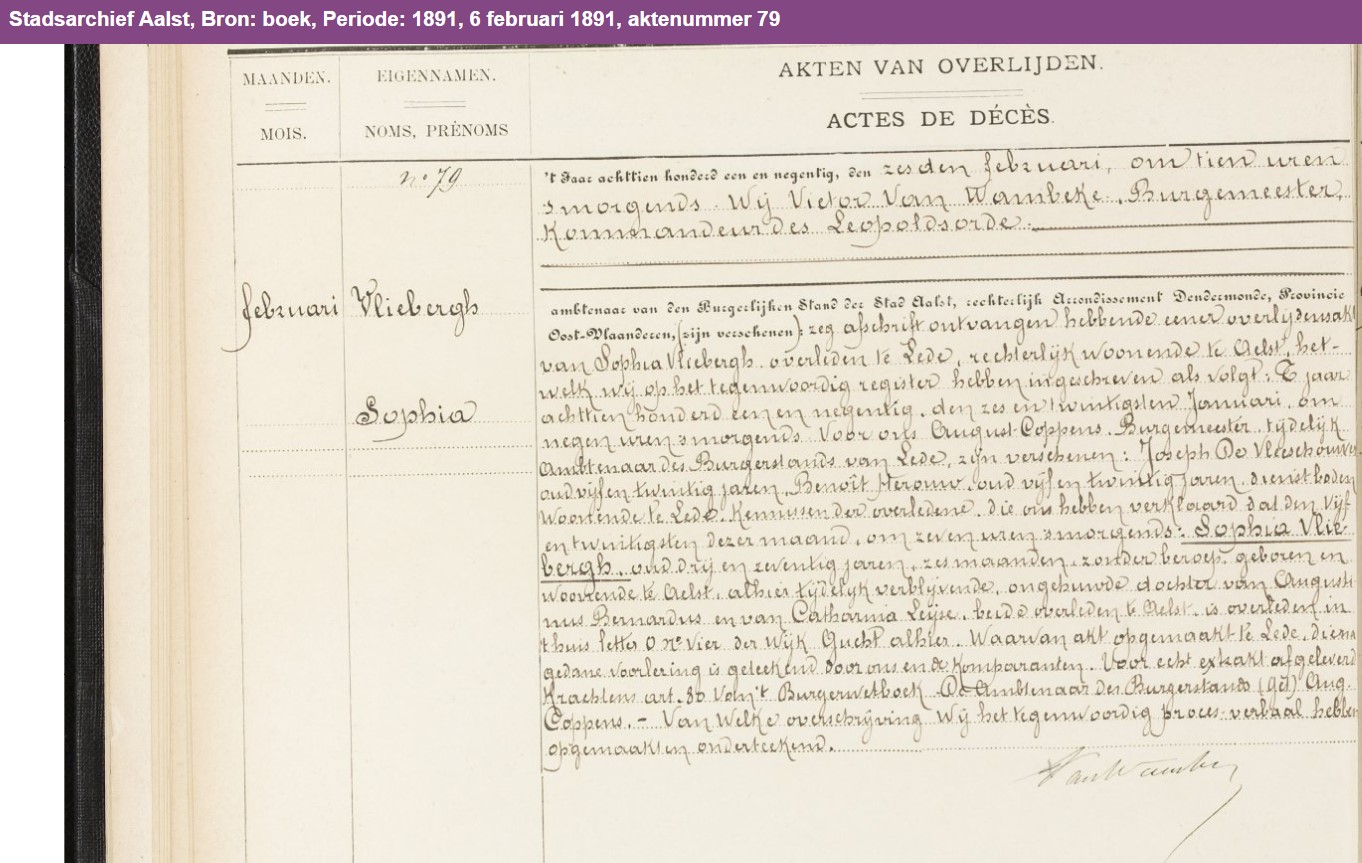 Stadsarchief Aalst, Bron: boek, Periode: 1891, 6 februari 1891, aktenummer 79
MAANDEN.
MOIS.
EIGENNAMEN.
NOMS, PRÉNOMS
AKTEN VAN OVERLIJDEN.
ACTES DE DÉCÈS.
n° 79
februari Vliebergh
Sophia
't Jaar achttien honderd een en negentig, den zesden februari, om tien uren
smorgends. Wij Victor Van Wambeke, Burgemeester,
Kommandeur des Leopoldsorde.
ambtenaar van den Burgerlijken Stand der Stad Aalst, rechterlijk Arrondissement Dendermonde, Provincie
Oost-Vlaanderen, (zijn verschenen): zeg afschrift ontvangen hebbende eener overlijdensakt
van Sophia Vliebergh, overleden te Lede, rechterlijk woonende te Aelst, het-
welk wij op het tegenwoordig register hebben ingeschreven als volgt: T jaar
achttien honderd een en negentig, den zes en twintigsten Januari, om
negen uren smorgends Voor ons August Coppens, Burgemeester, tijdelijk
Ambtenaar des Burgerstands van Lede, zijn verschenen: Joseph De Vleeschouwer
oud vijf en twintig jaren, Benoît oud vijf en twintig jaren, dienstboden
woonende te Lede, Kennissen der overledene, die ons hebben verklaard dat den vijf
en twintigsten dezer maand, om zeven uren smorgends: Sophia Vlie-
bergh, oud drij en zeventig jaren, zes maanden, zonder beroep, geboren en
woonende te Aelst, alhier tijdelijk verblijvende, ongehuwde dochter van Augusti-
nus Bernardus en van Catharina Leijse, beide overleden te Aelst, is overleden in
t huis letter O n° vier der Wijk Gucht alhier. Waarvan akt opgemaakt te Lede, die na
gedane voorlezing is geteekend door ons en de Komparanten. Voor echt extrakt afgeleverd
Krachtens art. 80 van 't Burgerwetboek. De Ambtenaar des Burgerstands (gd) Aug.
Coppens. - Van Welke overschrijving Wij het tegenwoordig proces-verbaal hebben
opgemaakt en onderteekend.
VanWambeke